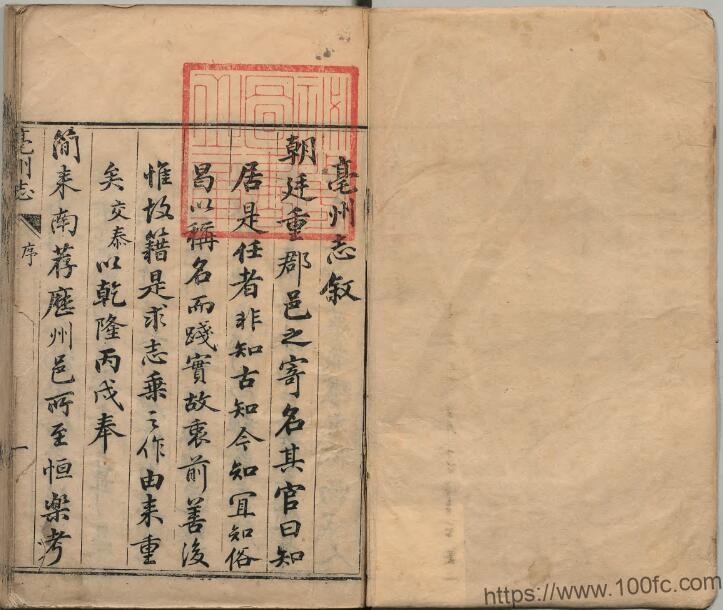 亳州志叙
朝廷重郡邑之寄名其官曰知
居是任者非知古知今知宜知俗
曷以稱名而踐實故衷前善後
惟故籍是求志乘之作由来重
矣交泰以乾隆丙戌奉
簡来南荐歷州邑所至恒樂考
亳州志
序
一
https://www.100fc.com